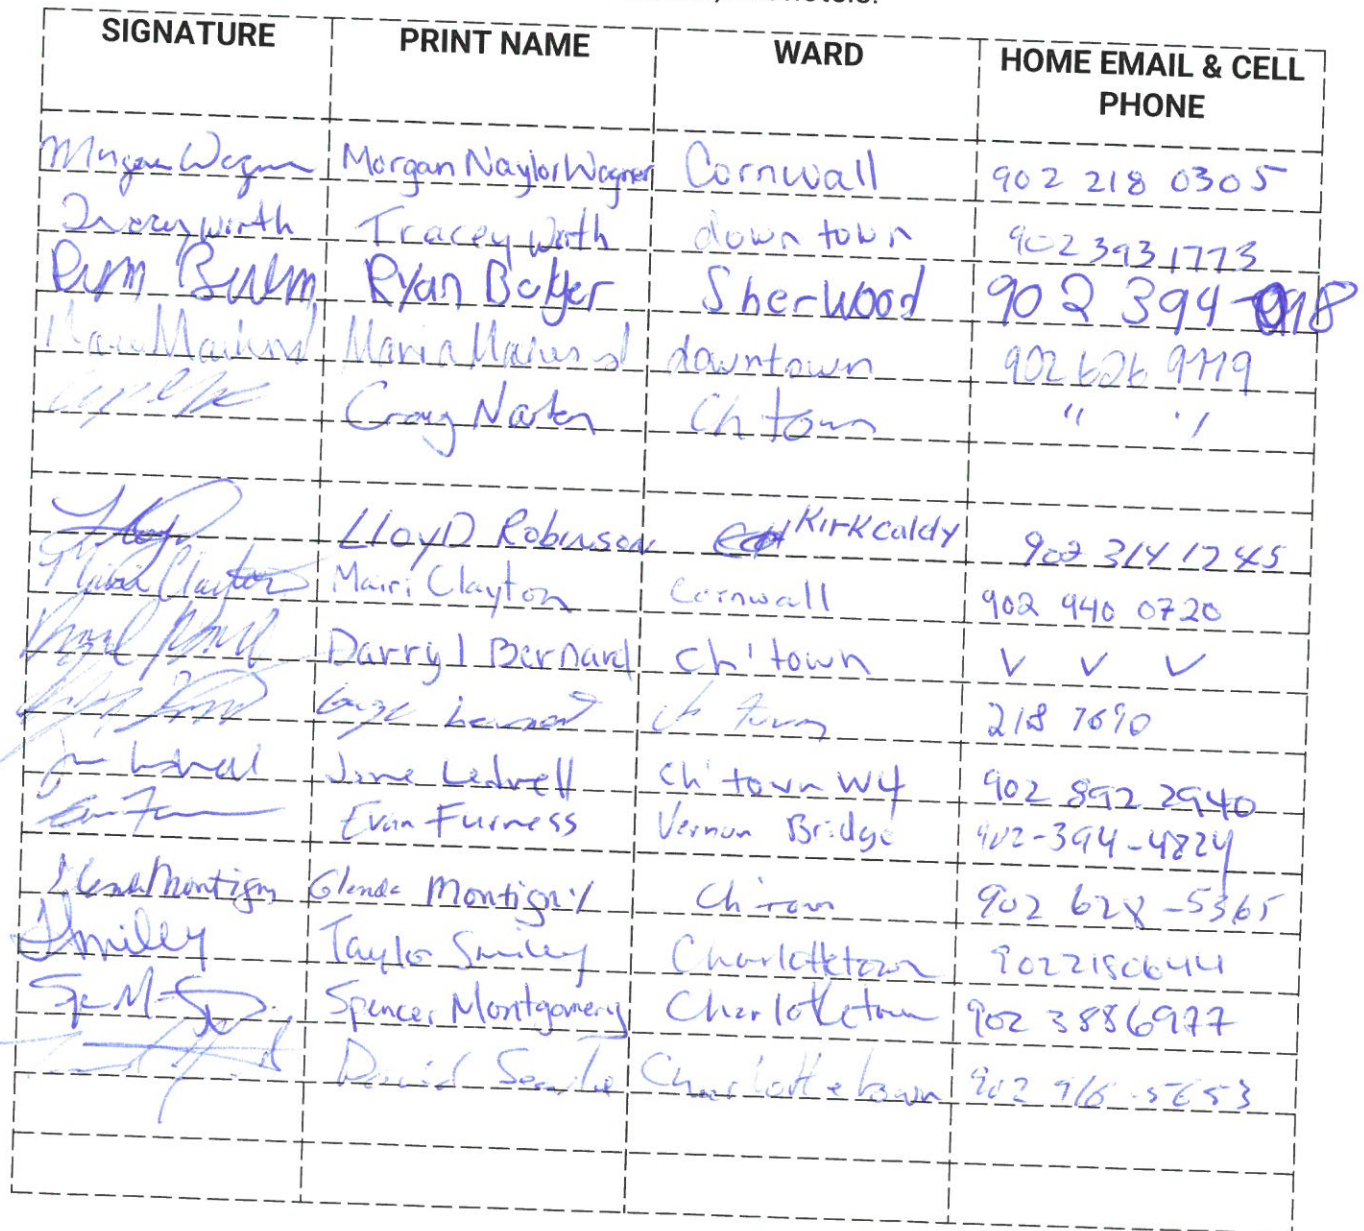 hotels.
SIGNATURE PRINT NAME WARD HOME EMAIL & CELL PHONE
Morgan Wagner Morgan Naylor Wagner Cornwall 902 218 0305
Tracey Wirth Tracey Wirth downtown 902 393 1773
Ryan Baker Sherwood 902 394
Maria downtown 902 626 9779
Craig Chtown " "
LLoyD Robinson Kirkcaldy 902 314 1245
Mairi Clayton Mairi Clayton Cornwall 902 940 0720
Darryl Bernard ch'town V V V
218 7690
Jane Ledwell ch'town W4 902 892 2940
Evan Furness Vernon Bridge 902-394-4824
Glenda Montigny Ch'town 902 628-5365
TSmiley Taylor Smiley Charlottetown 9022180644
Spencer Montgomery Charlottetown 902 3886977
David Charlottetown 902 916 5653